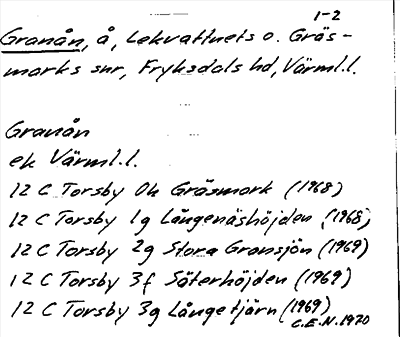 1-2
Granån, å, Lekvattnets o. Gräs-
marks snr, Fryksdals hd, Värml.l.
Granån
ek Värml.l.
12 C Torsby 0h Gräsmark (1968)
12 C Torsby 1g Långenäshöjden (1968)
12 C Torsby 2g Stora Gransjön (1969)
12 C Torsby 3f Säterhöjden (1969)
12 C Torsby 3g Långetjärn (1969)
C.E.N. 1970